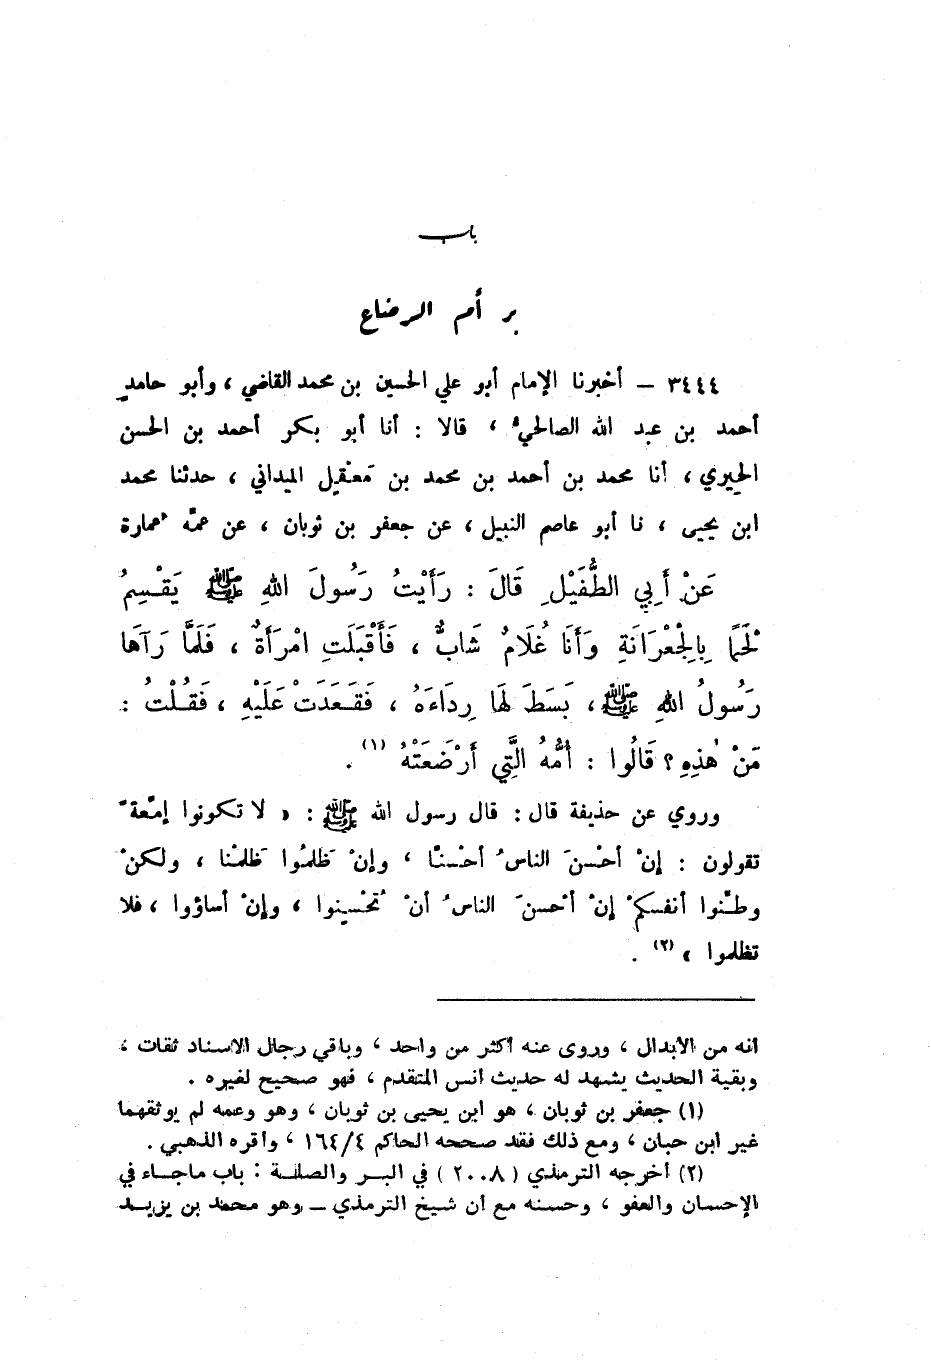 باب
بر أم الرضاع
٣٤٤٤ – أخبرنا الإمام أبو علي الحسين بن محمد القاضي ، وأبو حامدٍ
أحمد بن عبد الله الصالحيُّ ، قالا : أنا أبو بكر أحمد بن الحسن
الحِيري ، أنا محمد بن أحمد بن محمد بن مَعْقِل الميداني ، حدثنا محمد
ابن يحيى ، نا أبو عاصم النبيل ، عن جعفر بن ثوبان ، عن عمِّه عُمارة
عَنْ أَبِي الطُّفَيْلِ قَالَ : رَأَيْتُ رَسُولَ اللهِ ﷺ يَقْسِمُ
لَحْمًا بِالْجِعْرَانَةِ وَأَنَا غُلَامٌ شَابٌّ ، فَأَقْبَلَتِ امْرَأَةٌ ، فَلَمَّا رَآهَا
رَسُولُ اللهِ ﷺ ، بَسَطَ لَهَا رِدَاءَهُ ، فَقَعَدَتْ عَلَيْهِ ، فَقُلْتُ :
مَنْ هٰذِهِ ؟ قَالُوا : أُمُّهُ الَّتِي أَرْضَعَتْهُ (١) .
وروي عن حذيفة قال : قال رسول الله ﷺ : « لا تكونوا إمَّعةً
تقولون : إنْ أحْسنَ الناسُ أحْسنَّا ، وإنْ ظَلمُوا ظَلمْنا ، ولكنْ
وطِّنوا أنفسكمْ إنْ أحْسنَ الناسُ أنْ تُحْسِنوا ، وإنْ أساؤوا ، فلا
تظلموا » (٢) .
أنه من الأبدال ، وروى عنه أكثر من واحد ، وباقي رجال الاسناد ثقات ،
وبقية الحديث يشهد له حديث أنس المتقدم ، فهو صحيح لغيره .
(١) جعفر بن ثوبان ، هو ابن يحيى بن ثوبان ، وهو وعمه لم يوثقهما
غير ابن حبان ، ومع ذلك فقد صححه الحاكم ١٦٤/٤ ، وأقره الذهبي .
(٢) أخرجه الترمذي ( ٢٠٠٨ ) في البر والصلة : باب ما جاء في
الإحسان والعفو ، وحسنه مع أن شيخ الترمذي – وهو محمد بن يزيد